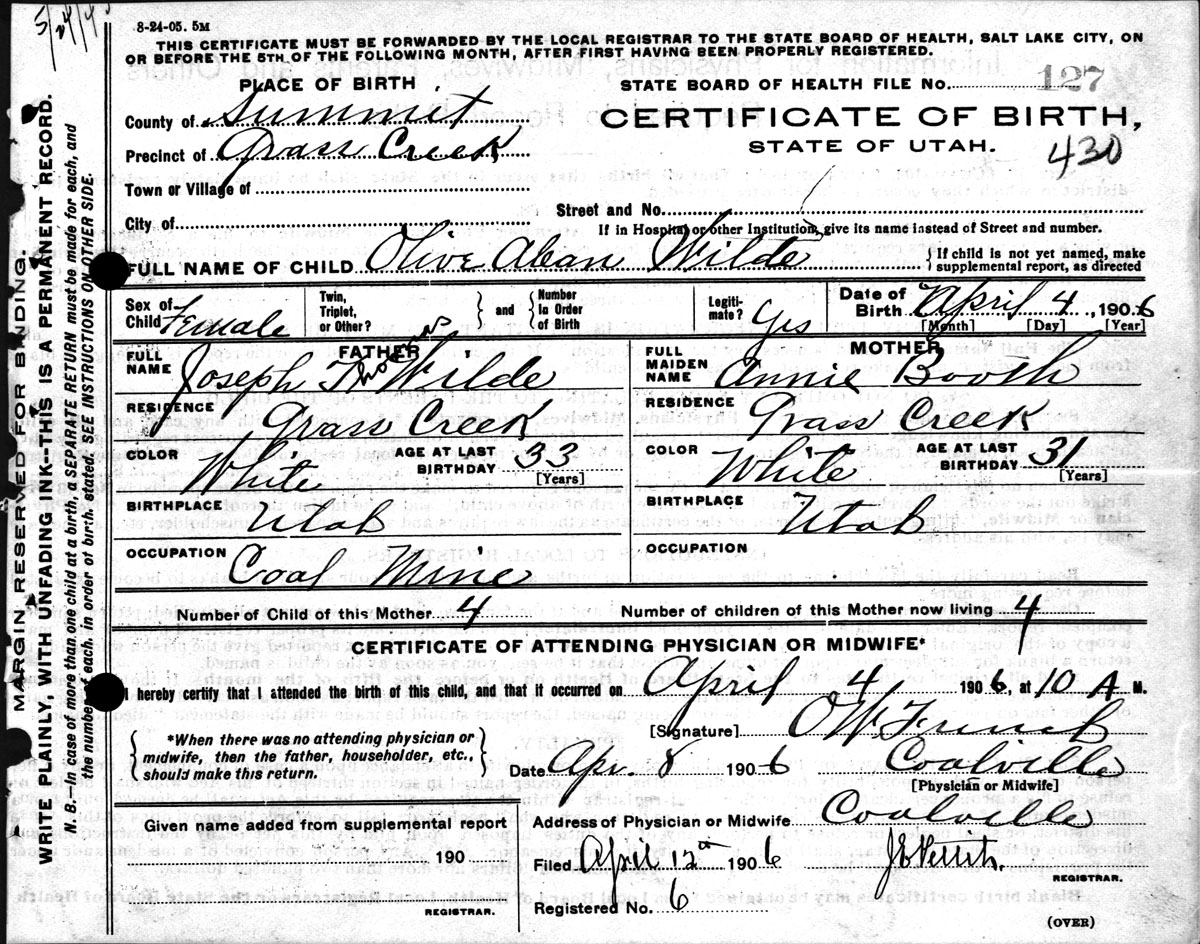 5/24/4
8-24-05. 5M
THIS CERTIFICATE MUST BE FORWARDED BY THE LOCAL REGISTRAR TO THE STATE BOARD OF HEALTH, SALT LAKE CITY, ON
OR BEFORE THE 5TH OF THE FOLLOWING MONTH, AFTER FIRST HAVING BEEN PROPERLY REGISTERED.
PLACE OF BIRTH
STATE BOARD OF HEALTH FILE No. 127
County of Summit
CERTIFICATE OF BIRTH,
Precinct of Grass Creek
STATE OF UTAH. 430
Town or Village of
Street and No.
City of
If in Hospital or other Institution, give its name instead of Street and number.
FULL NAME OF CHILD Olive Wilde
{If child is not yet named, make
supplemental report, as directed
Sex of Child Female
Twin, Triplet, or Other?
{ } and { Number in Order of Birth
Legitimate? Yes
Date of Birth April 4, 1906
[Month] [Day] [Year]
FATHER
FULL NAME Joseph Thos Wilde
RESIDENCE Grass Creek
COLOR White
AGE AT LAST BIRTHDAY 33
[Years]
BIRTHPLACE Utah
OCCUPATION Coal Mine
MOTHER
FULL MAIDEN NAME Annie Booth
RESIDENCE Grass Creek
COLOR White
AGE AT LAST BIRTHDAY 31
[Years]
BIRTHPLACE Utah
OCCUPATION
Number of Child of this Mother 4
Number of children of this Mother now living 4
CERTIFICATE OF ATTENDING PHYSICIAN OR MIDWIFE*
I hereby certify that I attended the birth of this child, and that it occurred on April 4 1906, at 10 A M.
[Signature] O W French
{*When there was no attending physician or
midwife, then the father, householder, etc.,
should make this return.}
Date Apr. 8 1906
Coalville
[Physician or Midwife]
Given name added from supplemental report
190
REGISTRAR.
Address of Physician or Midwife Coalville
Filed April 12th 1906
REGISTRAR.
Registered No. 6
(OVER)
MARGIN RESERVED FOR BINDING.
WRITE PLAINLY, WITH UNFADING INK--THIS IS A PERMANENT RECORD.
N. B.—In case of more than one child at a birth, a SEPARATE RETURN must be made for each, and
the number of each, in order of birth, stated. SEE INSTRUCTIONS ON OTHER SIDE.